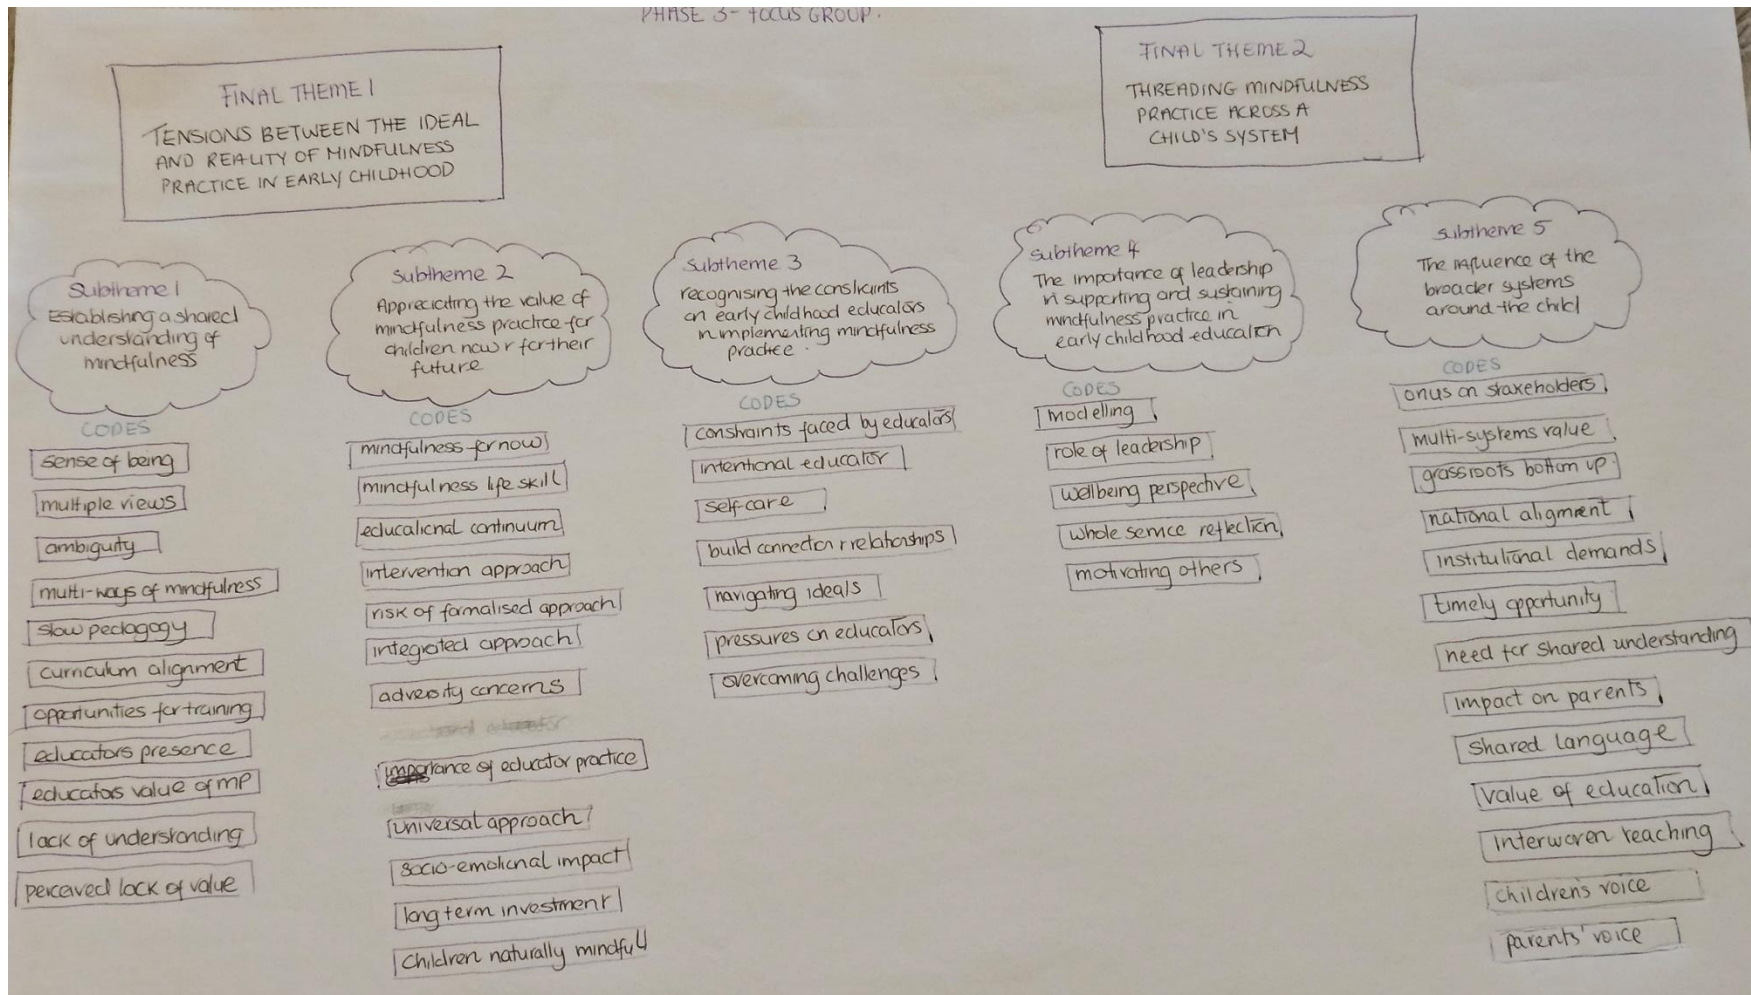 PHASE 3- FOCUS GROUP.
FINAL THEME 1
TENSIONS BETWEEN THE IDEAL
AND REALITY OF MINDFULNESS
PRACTICE IN EARLY CHILDHOOD
FINAL THEME 2
THREADING MINDFULNESS
PRACTICE ACROSS A
CHILD'S SYSTEM
Subtheme 1
Establishing a shared
understanding of
mindfulness
CODES
sense of being
multiple views
ambiguity
multi-ways of mindfulness
slow pedagogy
curriculum alignment
opportunities for training
educators presence
educators value of MP
lack of understanding
perceived lack of value
Subtheme 2
Appreciating the value of
mindfulness practice for
children now + for their
future
CODES
mindfulness for now
mindfulness life skill
educational continuum
intervention approach
risk of formalised approach
integrated approach
adversity concerns
importance of educator practice
universal approach
socio-emotional impact
long term investment
Children naturally mindful
Subtheme 3
recognising the constraints
on early childhood educators
in implementing mindfulness
practice.
CODES
constraints faced by educators
intentional educator
self-care
build connection + relationships
navigating ideals
pressures on educators
overcoming challenges
Subtheme 4
The importance of leadership
in supporting and sustaining
mindfulness practice in
early childhood education
CODES
modelling
role of leadership
wellbeing perspective
whole service reflection
motivating others
Subtheme 5
The influence of the
broader systems
around the child
CODES
onus on stakeholders
multi-systems value
grassroots bottom up
national aligment
institutional demands
timely opportunity
need for shared understanding
impact on parents
shared language
value of education
interwoven teaching
children's voice
parents' voice